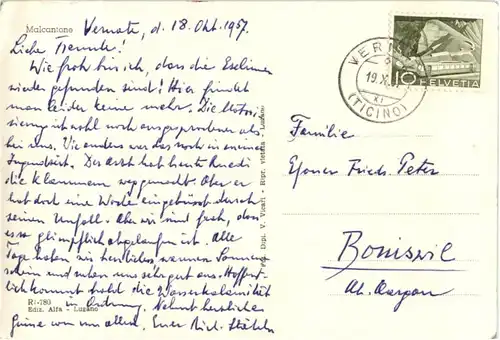 Malcantone
Vernate, d. 18. Okt. 1957.
Liebe Freunde!
Wie froh bin ich, dass die Eselinnen
wieder gefunden sind! Hier findet
man leider keine mehr. Die Motori-
sierung ist wohl noch ausgesprochener als
bei uns. Wie anders war das noch in meiner
Jugendzeit. Der Arzt hat heute Ruedi
die Klammern weggemacht. Aber er
hat doch eine Woche eingebüsst durch
seinen Unfall. Aber wir sind froh, dass
es glimpflich abgelaufen ist. Alle
Tage haben wir herrlichen warmen Sonnen-
schein und ruhen uns sehr gut aus. Hoffent-
lich kommt bald die Wasserkalamität
in Ordnung. Nehmt herzliche
Grüsse von uns allen. Euer Rich.
R-780
Ediz. Alfa - Luzano
Dopl. V. Vicari - Ripr. vietata - Lugano
VERNATE
19. X.
XI
(TICINO)
10 HELVETIA
Familie
Fried. Peter
Boniswil
Kt. Aargau